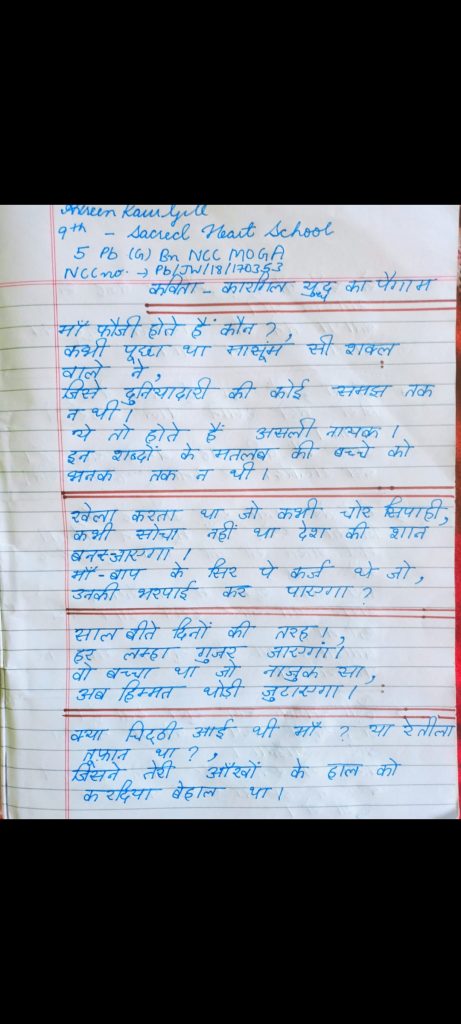 Kaur Gill
9th - Sacred Heart School
5 Pb (G) Bn NCC MOGA
NCC no. → Pb/JW/18/170353
कविता - कारगिल युद्ध का पैगाम
माँ फौजी होते हैं कौन ?,
कभी पूछा था मासूम सी शक्ल
वाले ने,
जिसे दुनियादारी की कोई समझ तक
न थी।
ये तो होते हैं असली नायक।
इन शब्दों के मतलब की बच्चे को
भनक तक न थी।
खेला करता था जो कभी चोर सिपाही,
कभी सोचा नहीं था देश की शान
बनआएगा।
माँ-बाप के सिर पे कर्ज थे जो,
उनकी भरपाई कर पाएगा ?
साल बीते दिनों की तरह।,
हर लम्हा गुजर जाएगा।
वो बच्चा था जो नाजुक सा,
अब हिम्मत थोडी जुटाएगा।
क्या चिट्ठी आई थी माँ ? या रेतीला
तूफान था ?,
जिसने तेरी आँखों के हाल को
करदिया बेहाल था।